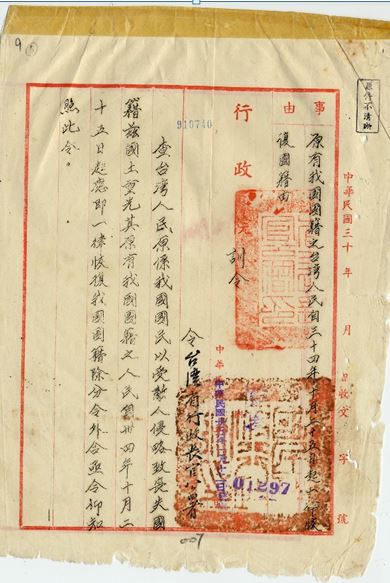 原件不清晰
中華民國三十 年 月 日收文 字 號
事由
原有我國國籍之台灣人民自三十四年十月二十五日起一律恢
復國籍由
行政院訓令
910740
令台灣省行政長官公署
01297
查台灣人民原係我國國民以受敵人侵略致喪失國
籍茲國土重光其原有我國國籍之人民自卅四年十月二
十五日起應即一律恢復我國國籍除分令外合亟令仰知
照此令。
007